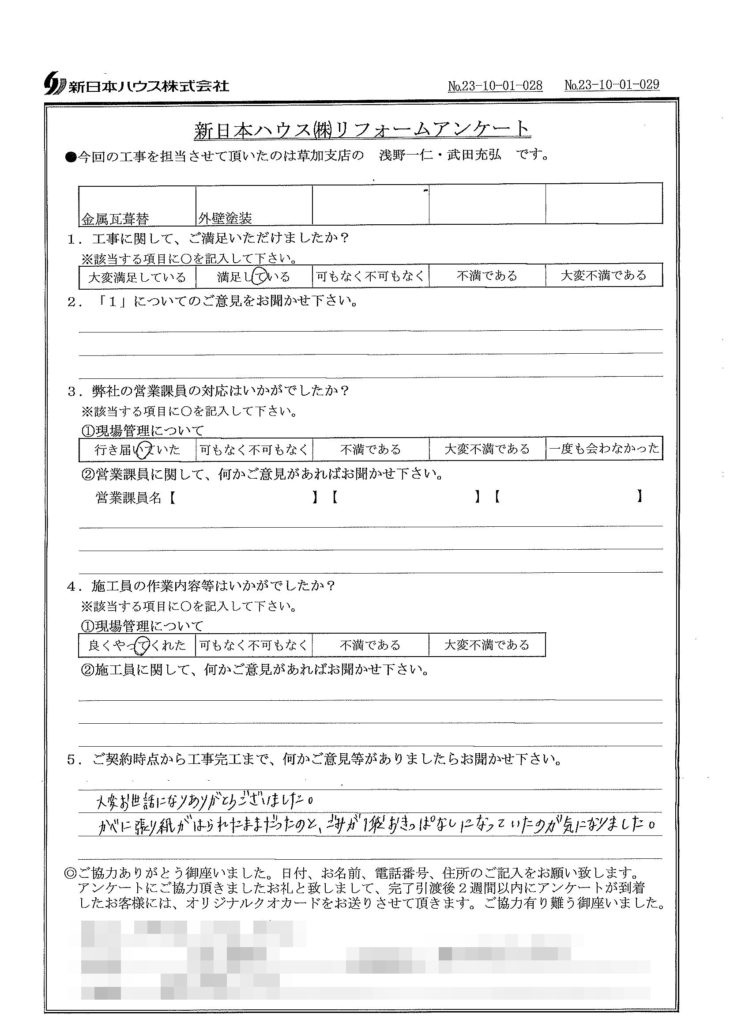 新日本ハウス株式会社 №23-10-01-028 №23-10-01-029
新日本ハウス㈱リフォームアンケート
●今回の工事を担当させて頂いたのは草加支店の 浅野一仁・武田充弘 です。
金属瓦葺替 外壁塗装
1．工事に関して、ご満足いただけましたか？
※該当する項目に〇を記入して下さい。
大変満足している 満足している 可もなく不可もなく 不満である 大変不満である
2．「1」についてのご意見をお聞かせ下さい。
3．弊社の営業課員の対応はいかがでしたか？
※該当する項目に〇を記入して下さい。
①現場管理について
行き届いていた 可もなく不可もなく 不満である 大変不満である 一度も会わなかった
②営業課員に関して、何かご意見があればお聞かせ下さい。
営業課員名【 】【 】【 】
4．施工員の作業内容等はいかがでしたか？
※該当する項目に〇を記入して下さい。
①現場管理について
良くやってくれた 可もなく不可もなく 不満である 大変不満である
②施工員に関して、何かご意見があればお聞かせ下さい。
5．ご契約時点から工事完工まで、何かご意見等がありましたらお聞かせ下さい。
大変お世話になりありがとうございました。
かべに張り紙がはられたままだったのと、ごみが1袋おきっぱなしになっていたのが気になりました。
◎ご協力ありがとう御座いました。日付、お名前、電話番号、住所のご記入をお願い致します。
アンケートにご協力頂きましたお礼と致しまして、完了引渡後2週間以内にアンケートが到着
したお客様には、オリジナルクオカードをお送りさせて頂きます。ご協力有り難う御座いました。